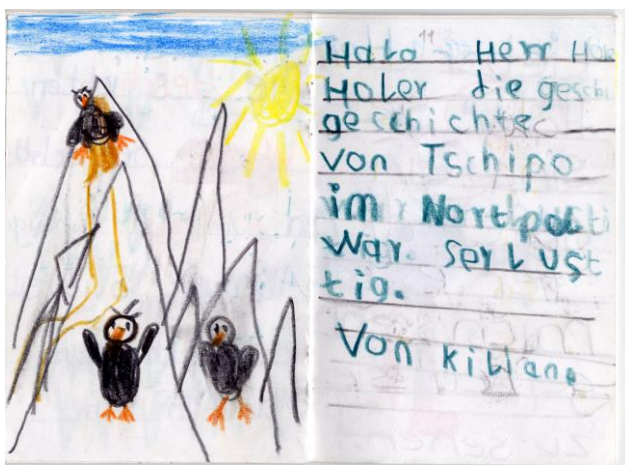 Halo Herr Hol
Holer die geschi
geschichte
von Tschipo
im Nortpol
War. ser lus
tig.
Von kilian